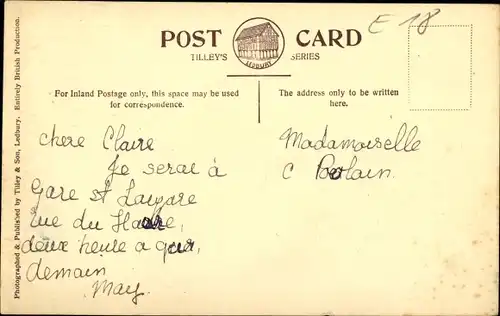 E 18
POST CARD
TILLEY'S SERIES
LEDBURY
For Inland Postage only, this space may be used
for correspondence.
The address only to be written
here.
Photographed & Published by Tilley & Son, Ledbury. Entirely British Production.
chere Claire
Je serai à
Gare st Lazare
rue du Havre,
deux heule a
demain
May.
Madamoiselle
C